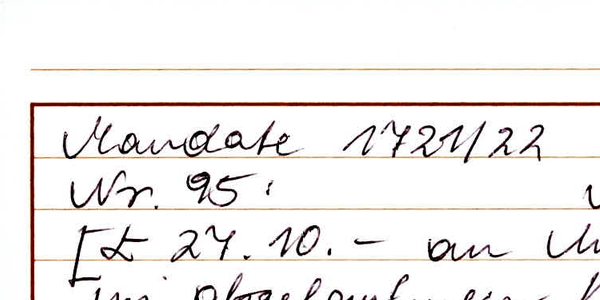 Mandate 1721/22
Nr. 95:
[£ 27.10.- an
im abgelaufenen